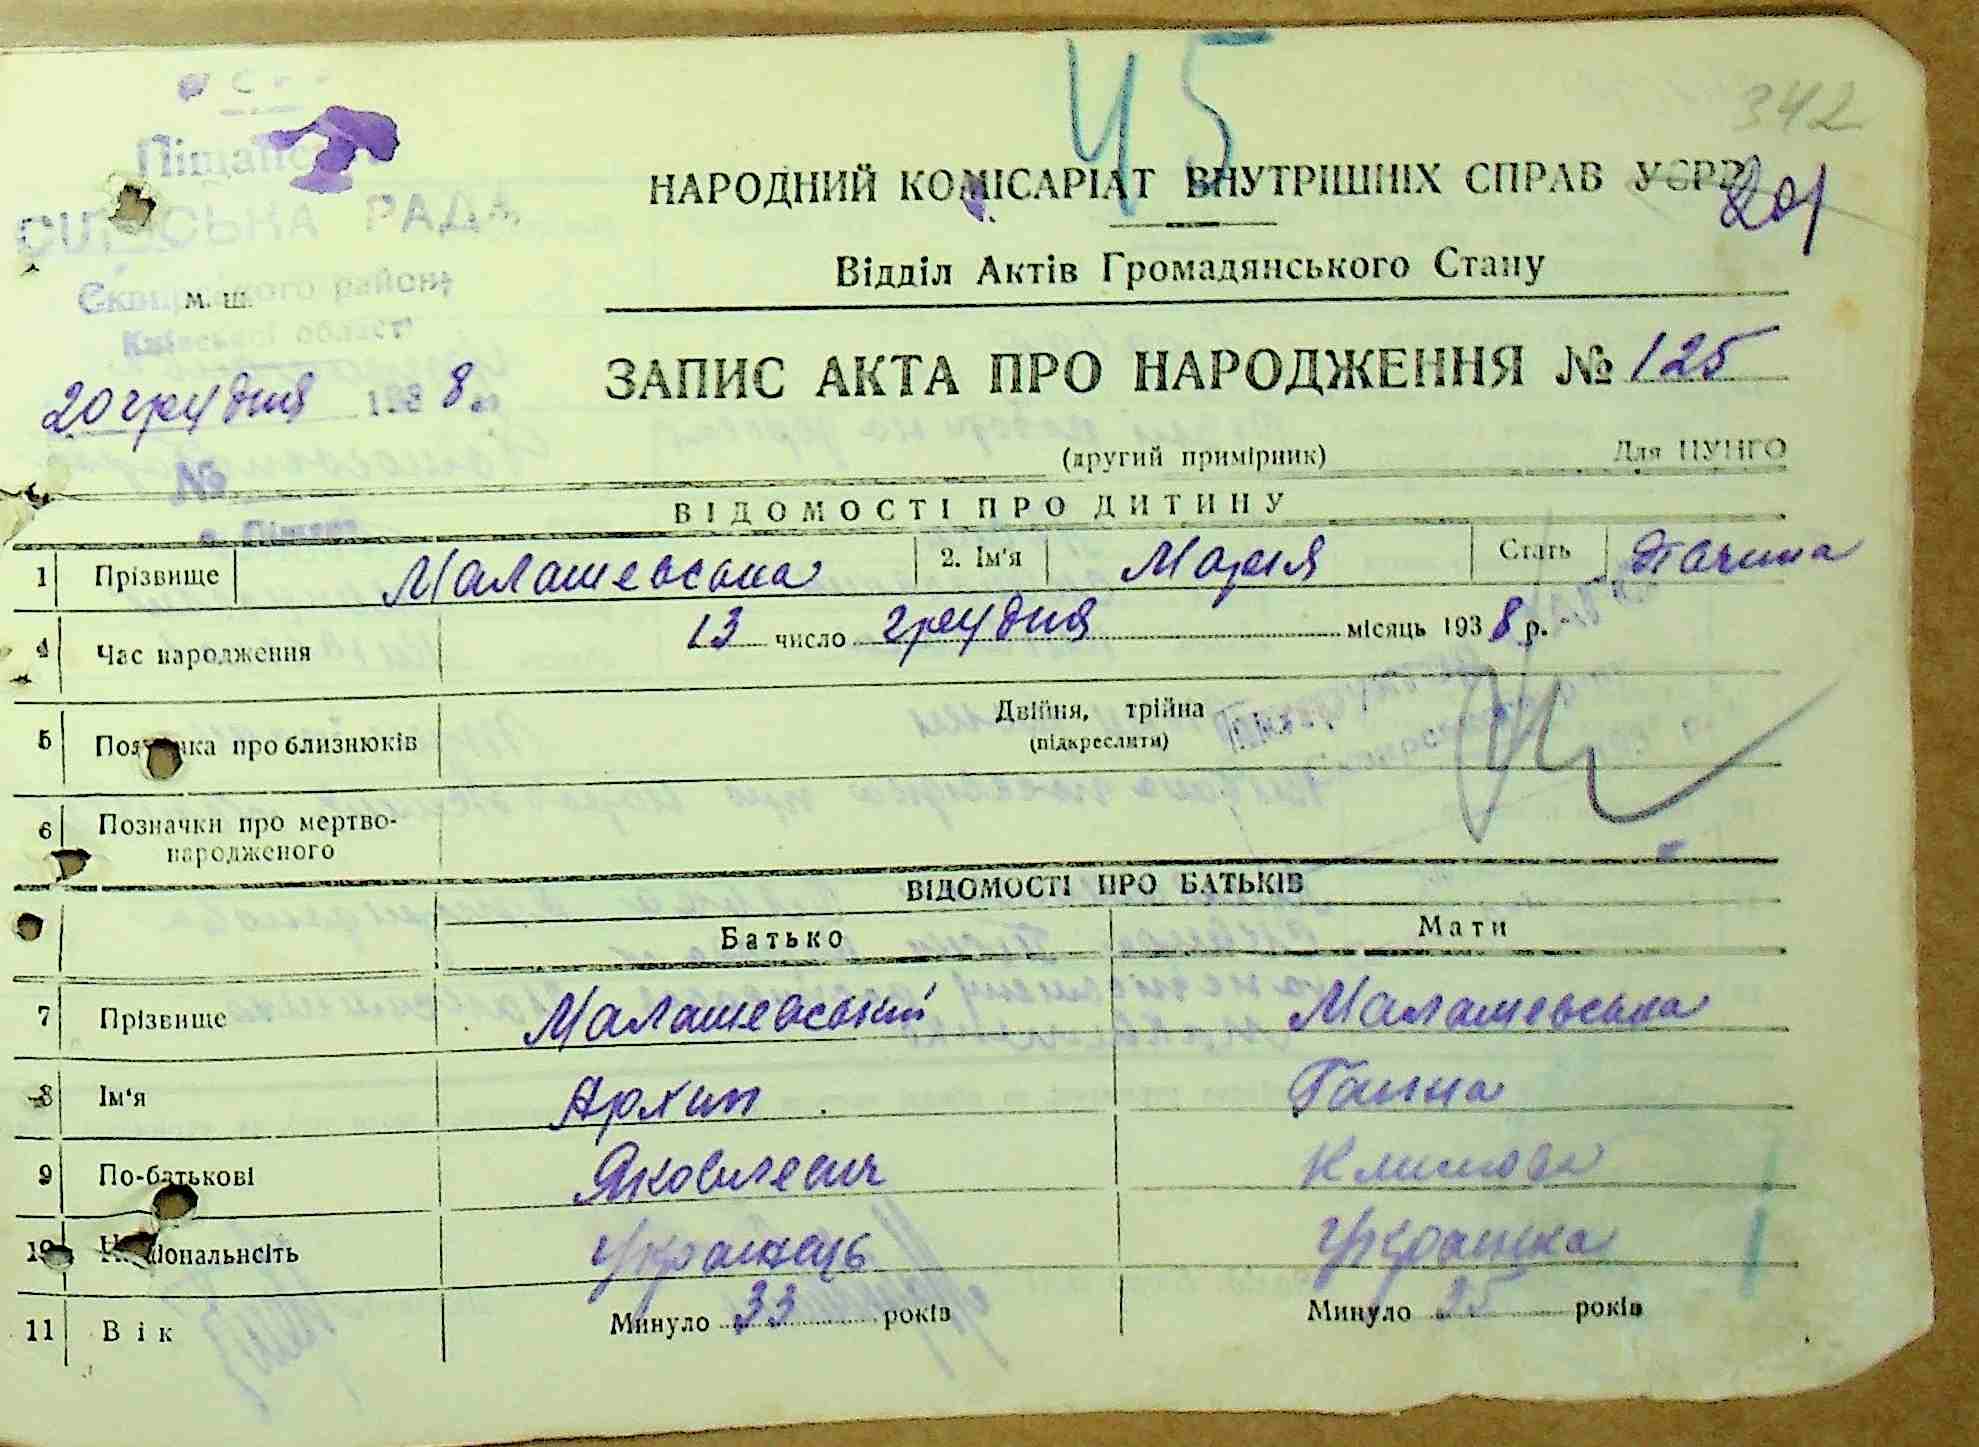 45
342
201
Піщан
СІЛЬСЬКА РАДА
Сквирського району
Київської області
м. ш.
НАРОДНИЙ КОМІСАРІАТ ВНУТРІШНІХ СПРАВ УСРР
Відділ Актів Громадянського Стану
20 грудня 1938 8 р.
ЗАПИС АКТА ПРО НАРОДЖЕННЯ № 125
(другий примірник) Для ЦУНГО
№
ВІДОМОСТІ ПРО ДИТИНУ
1 Прізвище Малашевська 2. Ім'я Марія Стать
4 Час народження 13 число грудня місяць 1938 р.
5 про близнюків Двійня, трійна
(підкреслити)
6 Позначки про мертво-
народженого
ВІДОМОСТІ ПРО БАТЬКІВ
Батько Мати
7 Прізвище Малашевський Малашевська
8 Ім'я Архип Ганна
9 По-батькові Яковлевич Климова
10 Національність Українець Українка
11 Вік Минуло 33 років Минуло 25 років